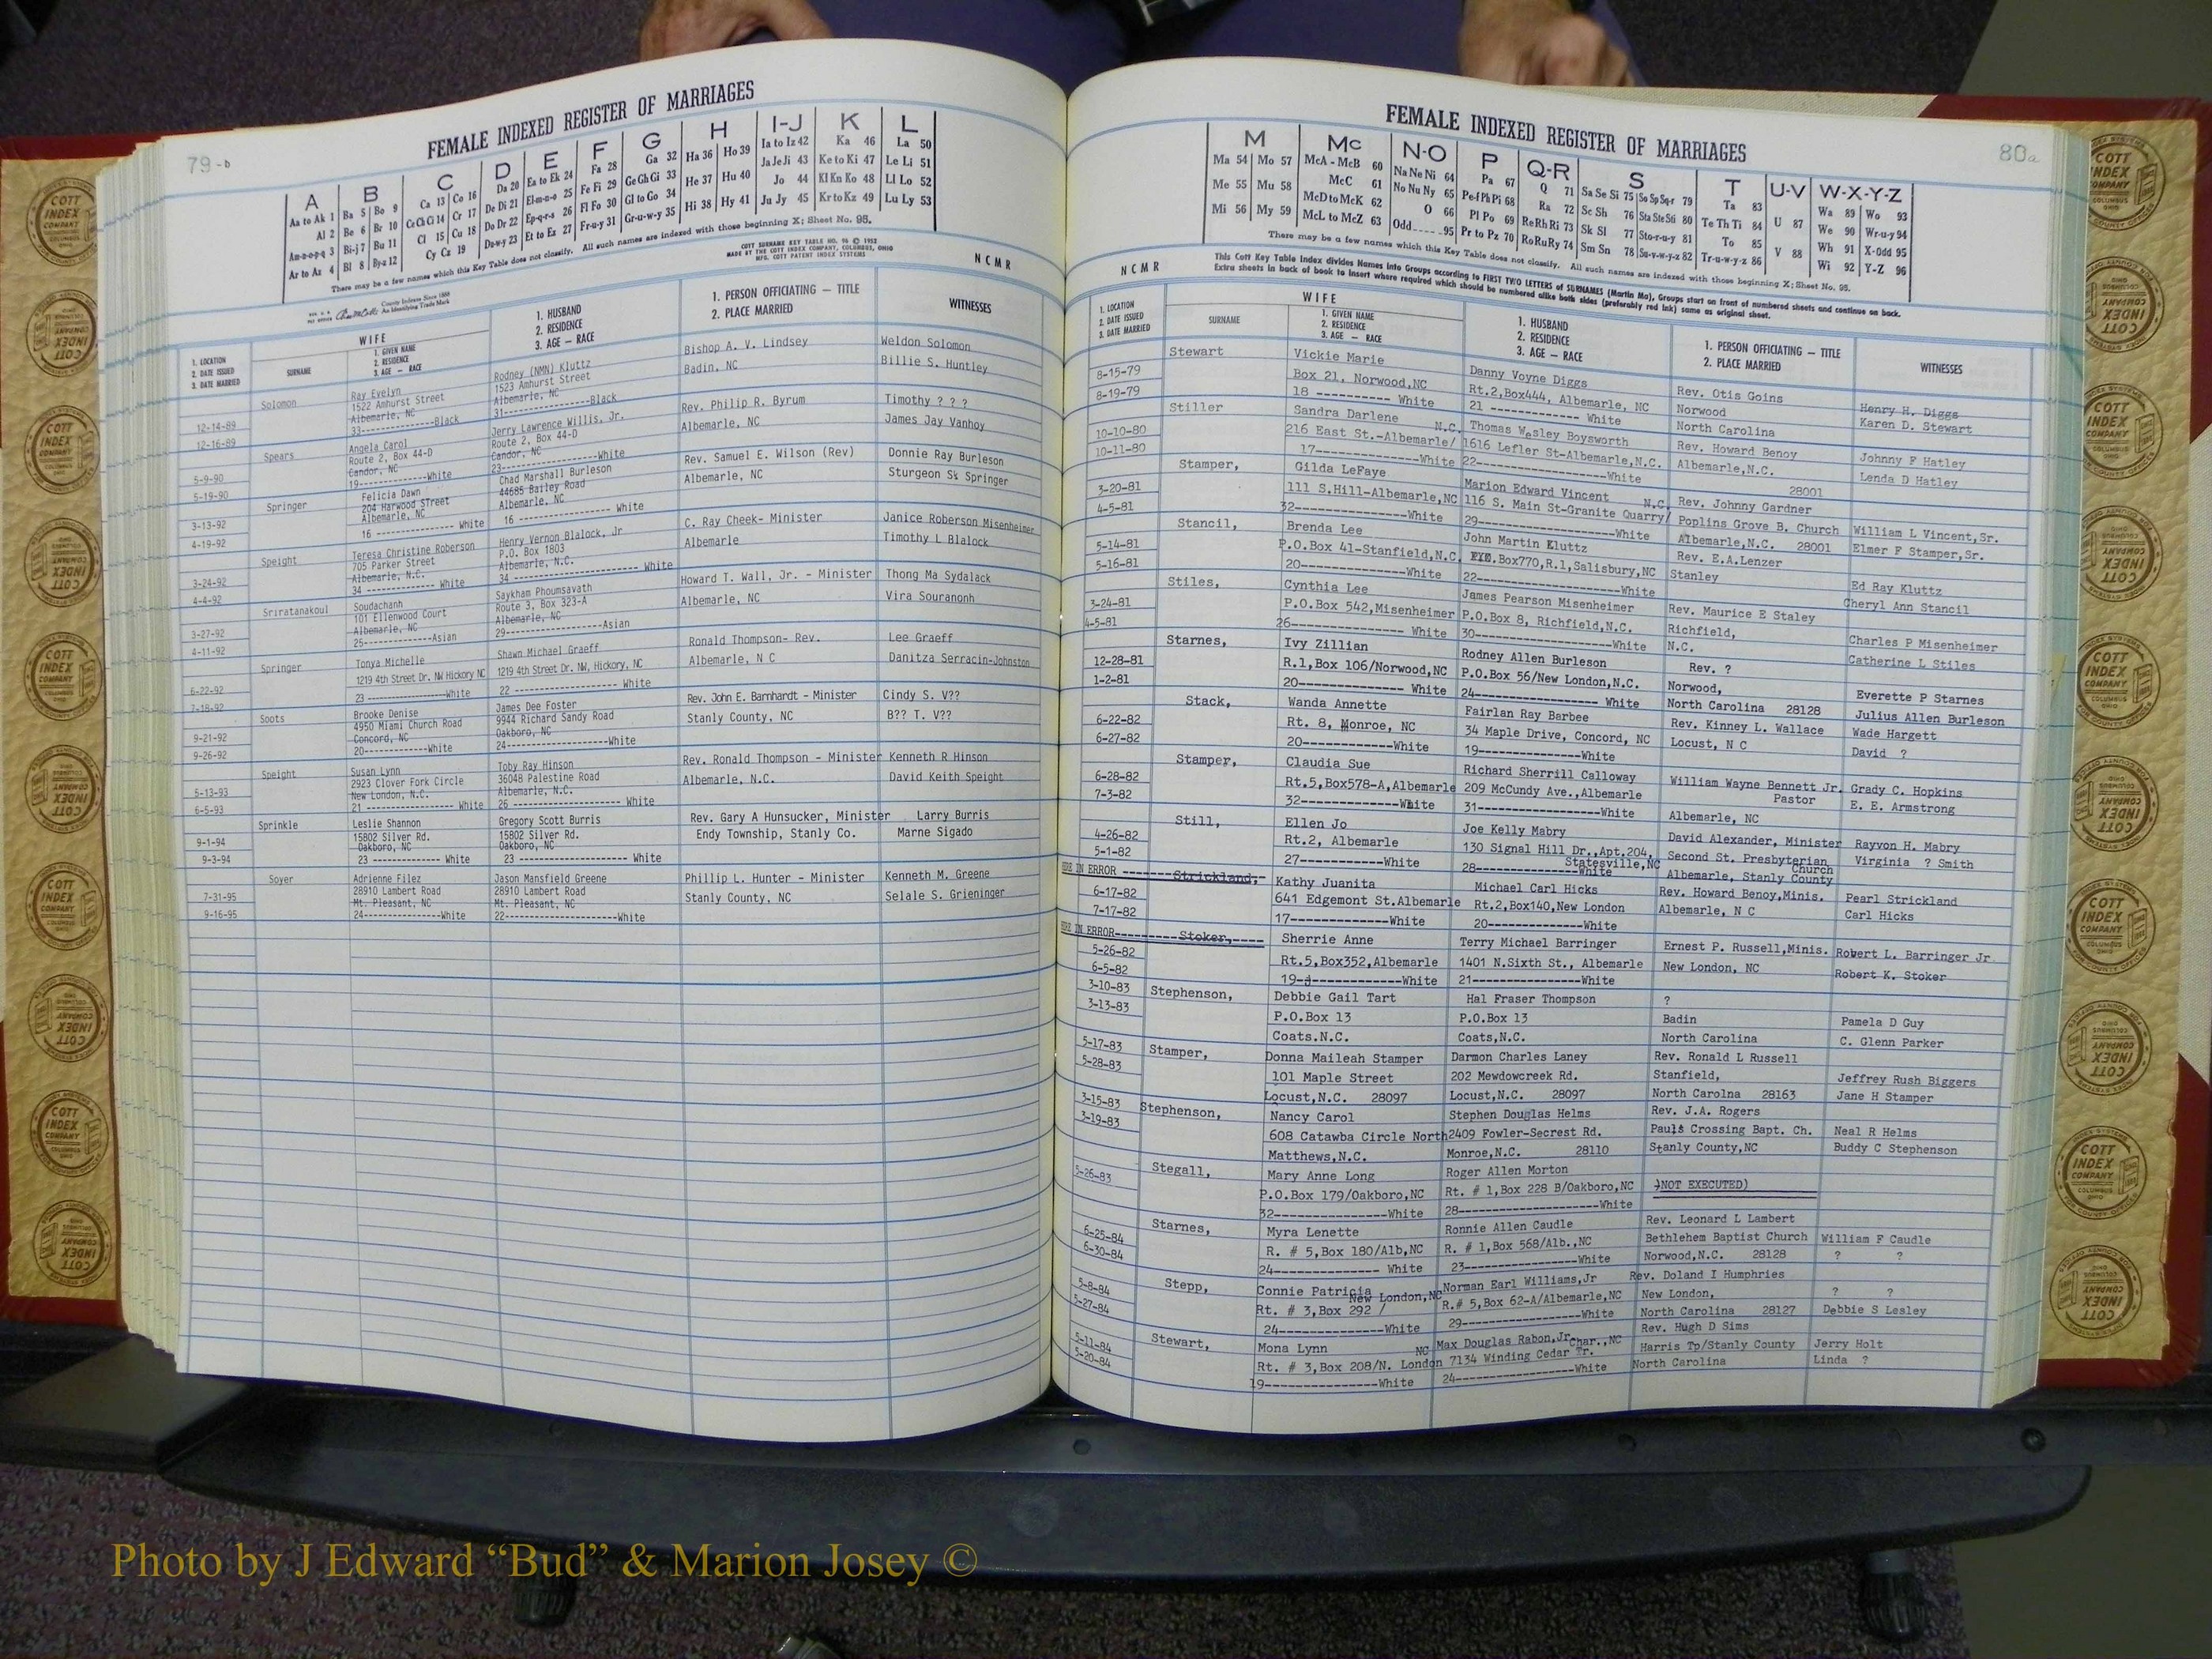 79-b
FEMALE INDEXED REGISTER OF MARRIAGES
A B C D E F G H I-J K L
Aa to Ak 1 Ba 5 Bo 9 Ca 13 Co 16 Da 20 Ea to Ek 24 Fa 28 Ga 32 Ha 36 Ho 39 Ia to Iz 42 Ka 46 La 50
Al 2 Be 6 Br 10 Ce Ch Ci 14 Cr 17 De Di 21 El-m-n-o 25 Fe Fi 29 Ge Gh Gi 33 He 37 Hu 40 Ja Je Ji 43 Ke to Ki 47 Le Li 51
Am-n-o-p-q 3 Bi-j 7 Bu 11 Cl 15 Cu 18 Do Dr 22 Ep-q-r-s 26 Fl Fo 30 Gl to Go 34 Hi 38 Hy 41 Jo 44 Kl Kn Ko 48 Ll Lo 52
Ar to Az 4 Bl 8 By-z 12 Cy Cz 19 Du-w-y 23 Et to Ez 27 Fr-u-y 31 Gr-u-w-y 35 Ju Jy 45 Kr to Kz 49 Lu Ly 53
There may be a few names which this Key Table does not classify. All such names are indexed with those beginning X; Sheet No. 95.
County Indexes Since 1888
An Identifying Trade Mark
COTT SURNAME KEY TABLE NO. 96 © 1952
MADE BY THE COTT INDEX COMPANY, COLUMBUS, OHIO
MFG. COTT PATENT INDEX SYSTEMS
NCMR
1. LOCATION
2. DATE ISSUED
3. DATE MARRIED
WIFE
SURNAME
1. GIVEN NAME
2. RESIDENCE
3. AGE — RACE
1. HUSBAND
2. RESIDENCE
3. AGE — RACE
1. PERSON OFFICIATING — TITLE
2. PLACE MARRIED
WITNESSES
Solomon Ray Evelyn Rodney (NMN) Kluttz Bishop A. V. Lindsey Weldon Solomon
1522 Amhurst Street 1523 Amhurst Street Badin, NC Billie S. Huntley
12-14-89 Albemarle, NC Albemarle, NC
12-16-89 33---------------Black 31---------------Black
Spears Angela Carol Jerry Lawrence Willis, Jr. Rev. Philip R. Byrum Timothy ? ? ?
Route 2, Box 44-D Route 2, Box 44-D Albemarle, NC James Jay Vanhoy
5-9-90 Candor, NC Candor, NC
5-19-90 19---------------White 23---------------White
Springer Felicia Dawn Chad Marshall Burleson Rev. Samuel E. Wilson (Rev) Donnie Ray Burleson
204 Harwood STreet 44685 Bailey Road Albemarle, NC Sturgeon S Springer
3-13-92 Albemarle, NC Albemarle, NC
4-19-92 16 ------------ White 16 ---------------- White
Speight Teresa Christine Roberson Henry Vernon Blalock, Jr C. Ray Cheek- Minister Janice Roberson Misenheimer
705 Parker Street P.O. Box 1803 Albemarle Timothy L Blalock
3-24-92 Albemarle, N.C. Albemarle, N.C.
4-4-92 34 ------------ White 34 ---------------- White
Sriratanakoul Soudachanh Saykham Phoumsavath Howard T. Wall, Jr. - Minister Thong Ma Sydalack
101 Ellenwood Court Route 3, Box 323-A Albemarle, NC Vira Souranonh
3-27-92 Albemarle, NC Albemarle, NC
4-11-92 25---------------Asian 29---------------Asian
Springer Tonya Michelle Shawn Michael Graeff Ronald Thompson- Rev. Lee Graeff
1219 4th Street Dr. NW Hickory NC 1219 4th Street Dr. NW, Hickory, NC Albemarle, N C Danitza Serracin-Johnston
6-22-92 23 ---------------White 22 ---------------- White
7-18-92
Soots Brooke Denise James Dee Foster Rev. John E. Barnhardt - Minister Cindy S. V??
4950 Miami Church Road 9944 Richard Sandy Road Stanly County, NC B?? T. V??
9-21-92 Concord, NC Oakboro, NC
9-26-92 20---------------White 24---------------White
Speight Susan Lynn Toby Ray Hinson Rev. Ronald Thompson - Minister Kenneth R Hinson
2923 Clover Fork Circle 36048 Palestine Road Albemarle, N.C. David Keith Speight
5-13-93 New London, N.C. Albemarle, N.C.
6-5-93 21 ---------------- White 26 ---------------- White
Sprinkle Leslie Shannon Gregory Scott Burris Rev. Gary A Hunsucker, Minister Larry Burris
15802 Silver Rd. 15802 Silver Rd. Endy Township, Stanly Co. Marne Sigado
9-1-94 Oakboro, NC Oakboro, NC
9-3-94 23 ------------- White 23 ---------------- White
Soyer Adrienne Filez Jason Mansfield Greene Phillip L. Hunter - Minister Kenneth M. Greene
7-31-95 28910 Lambert Road 28910 Lambert Road Stanly County, NC Selale S. Grieninger
Mt. Pleasant, NC Mt. Pleasant, NC
9-16-95 24---------------White 22---------------White
80a
FEMALE INDEXED REGISTER OF MARRIAGES
M Mc N-O P Q-R S T U-V W-X-Y-Z
Ma 54 Mo 57 McA - McB 60 Na Ne Ni 64 Pa 67 Q 71 Sa Se Si 75 So Sp Sq-r 79 Ta 83 U 87 Wa 89 Wo 93
Me 55 Mu 58 McC 61 No Nu Ny 65 Pe-f Ph Pi 68 Ra 72 Sc Sh 76 Sta Ste Sti 80 Te Th Ti 84 We 90 Wr-u-y 94
Mi 56 My 59 McD to McK 62 O 66 Pl Po 69 Re Rh Ri 73 Sk Sl 77 Sto-r-u-y 81 To 85 V 88 Wh 91 X-Odd 95
McL to McZ 63 Odd 95 Pr to Pz 70 Ro Ru Ry 74 Sm Sn 78 Su-v-w-y-z 82 Tr-u-w-y-z 86 Wi 92 Y-Z 96
There may be a few names which this Key Table does not classify. All such names are indexed with those beginning X; Sheet No. 95.
This Cott Key Table Index divides Names into Groups according to FIRST TWO LETTERS of SURNAMES (Martin Ma), Groups start on front of numbered sheets and continue on back.
Extra sheets in back of book to insert where required which should be numbered alike both sides (preferably red ink) same as original sheet.
NCMR
1. LOCATION
2. DATE ISSUED
3. DATE MARRIED
WIFE
SURNAME
1. GIVEN NAME
2. RESIDENCE
3. AGE — RACE
1. HUSBAND
2. RESIDENCE
3. AGE — RACE
1. PERSON OFFICIATING — TITLE
2. PLACE MARRIED
WITNESSES
Stewart Vickie Marie Danny Voyne Diggs Rev. Otis Goins Henry H. Diggs
8-15-79 Box 21, Norwood,NC Rt.2,Box444, Albemarle, NC Norwood Karen D. Stewart
8-19-79 18 ---------- White 21 ------------ White North Carolina
Stiller Sandra Darlene N.C. Thomas Wesley Boysworth Rev. Howard Benoy Johnny F Hatley
10-10-80 216 East St.-Albemarle/ 1616 Lefler St-Albemarle,N.C. Albemarle,N.C. Lenda D Hatley
10-11-80 17---------------White 22---------------White 28001
Stamper, Gilda LeFaye Marion Edward Vincent N.C. Rev. Johnny Gardner William L Vincent,Sr.
3-20-81 111 S.Hill-Albemarle,NC 116 S. Main St-Granite Quarry/ Poplins Grove B. Church Elmer F Stamper,Sr.
4-5-81 32---------------White 29---------------White Albemarle,N.C. 28001
Stancil, Brenda Lee John Martin Kluttz Rev. E.A.Lenzer Ed Ray Kluttz
5-14-81 P.O.Box 41-Stanfield,N.C. Box770,R.1,Salisbury,NC Stanley Cheryl Ann Stancil
5-16-81 20---------------White 22---------------White
Stiles, Cynthia Lee James Pearson Misenheimer Rev. Maurice E Staley Charles P Misenheimer
3-24-81 P.O.Box 542,Misenheimer P.O.Box 8, Richfield,N.C. Richfield, Catherine L Stiles
4-5-81 26--------------- White 30---------------White N.C.
Starnes, Ivy Zillian Rodney Allen Burleson Rev. ? Everette P Starnes
12-28-81 R.1,Box 106/Norwood,NC P.O.Box 56/New London,N.C. Norwood, Julius Allen Burleson
1-2-81 20--------------- White 24--------------- White North Carolina 28128
Stack, Wanda Annette Fairlan Ray Barbee Rev. Kinney L. Wallace Wade Hargett
6-22-82 Rt. 8, Monroe, NC 34 Maple Drive, Concord, NC Locust, N C David ?
6-27-82 20-------------White 19---------------White
Stamper, Claudia Sue Richard Sherrill Calloway William Wayne Bennett Jr. Grady C. Hopkins
6-28-82 Rt.5,Box578-A,Albemarle 209 McCundy Ave.,Albemarle Pastor E. E. Armstrong
7-3-82 32-------------White 31---------------White Albemarle, NC
Still, Ellen Jo Joe Kelly Mabry David Alexander, Minister Rayvon H. Mabry
4-26-82 Rt.2, Albemarle 130 Signal Hill Dr.,Apt.204, Second St. Presbyterian Virginia ? Smith
Statesville,NC Church
5-1-82 27------------White 28---------------White Albemarle, Stanly County
HERE IN ERROR ------- Strickland, Kathy Juanita Michael Carl Hicks Rev. Howard Benoy,Minis. Pearl Strickland
6-17-82 641 Edgemont St.Albemarle Rt.2,Box140,New London Albemarle, N C Carl Hicks
7-17-82 17-------------White 20---------------White
HERE IN ERROR--------- Stoker,---- Sherrie Anne Terry Michael Barringer Ernest P. Russell,Minis. Robert L. Barringer Jr.
5-26-82 Rt.5,Box352,Albemarle 1401 N.Sixth St., Albemarle New London, NC Robert K. Stoker
6-5-82 19---------------White 21---------------White
3-10-83 Stephenson, Debbie Gail Tart Hal Fraser Thompson ?
3-13-83 P.O.Box 13 P.O.Box 13 Badin Pamela D Guy
Coats.N.C. Coats,N.C. North Carolina C. Glenn Parker
5-17-83 Stamper, Donna Maileah Stamper Darmon Charles Laney Rev. Ronald L Russell
5-28-83 101 Maple Street 202 Mewdowcreek Rd. Stanfield, Jeffrey Rush Biggers
Locust,N.C. 28097 Locust,N.C. 28097 North Carolna 28163 Jane H Stamper
3-15-83 Stephenson, Nancy Carol Stephen Douglas Helms Rev. J.A. Rogers
3-19-83 608 Catawba Circle North 2409 Fowler-Secrest Rd. Pauls Crossing Bapt. Ch. Neal R Helms
Matthews,N.C. Monroe,N.C. 28110 Stanly County,NC Buddy C Stephenson
5-26-83 Stegall, Mary Anne Long Roger Allen Morton
P.O.Box 179/Oakboro,NC Rt. # 1,Box 228 B/Oakboro,NC )NOT EXECUTED)
32---------------White 28---------------White
Starnes, Myra Lenette Ronnie Allen Caudle Rev. Leonard L Lambert
6-25-84 R. # 5,Box 180/Alb,NC R. # 1,Box 568/Alb.,NC Bethlehem Baptist Church William F Caudle
6-30-84 24--------------- White 23---------------White Norwood,N.C. 28128 ? ?
Stepp, Connie Patricia Norman Earl Williams,Jr Rev. Doland I Humphries
5-8-84 New London,NC
5-27-84 Rt. # 3,Box 292 / R.# 5,Box 62-A/Albemarle,NC New London, ? ?
24---------------White 29---------------White North Carolina 28127 Debbie S Lesley
Stewart, Mona Lynn NC Max Douglas Rabon,Jr Char.,NC Rev. Hugh D Sims
5-11-84 Rt. # 3,Box 208/N. London 7134 Winding Cedar Tr. Harris Tp/Stanly County Jerry Holt
5-20-84 19---------------White 24---------------White North Carolina Linda ?
COTT INDEX COMPANY COLUMBUS OHIO
FOR COUNTY OFFICES
Photo by J Edward “Bud” & Marion Josey ©